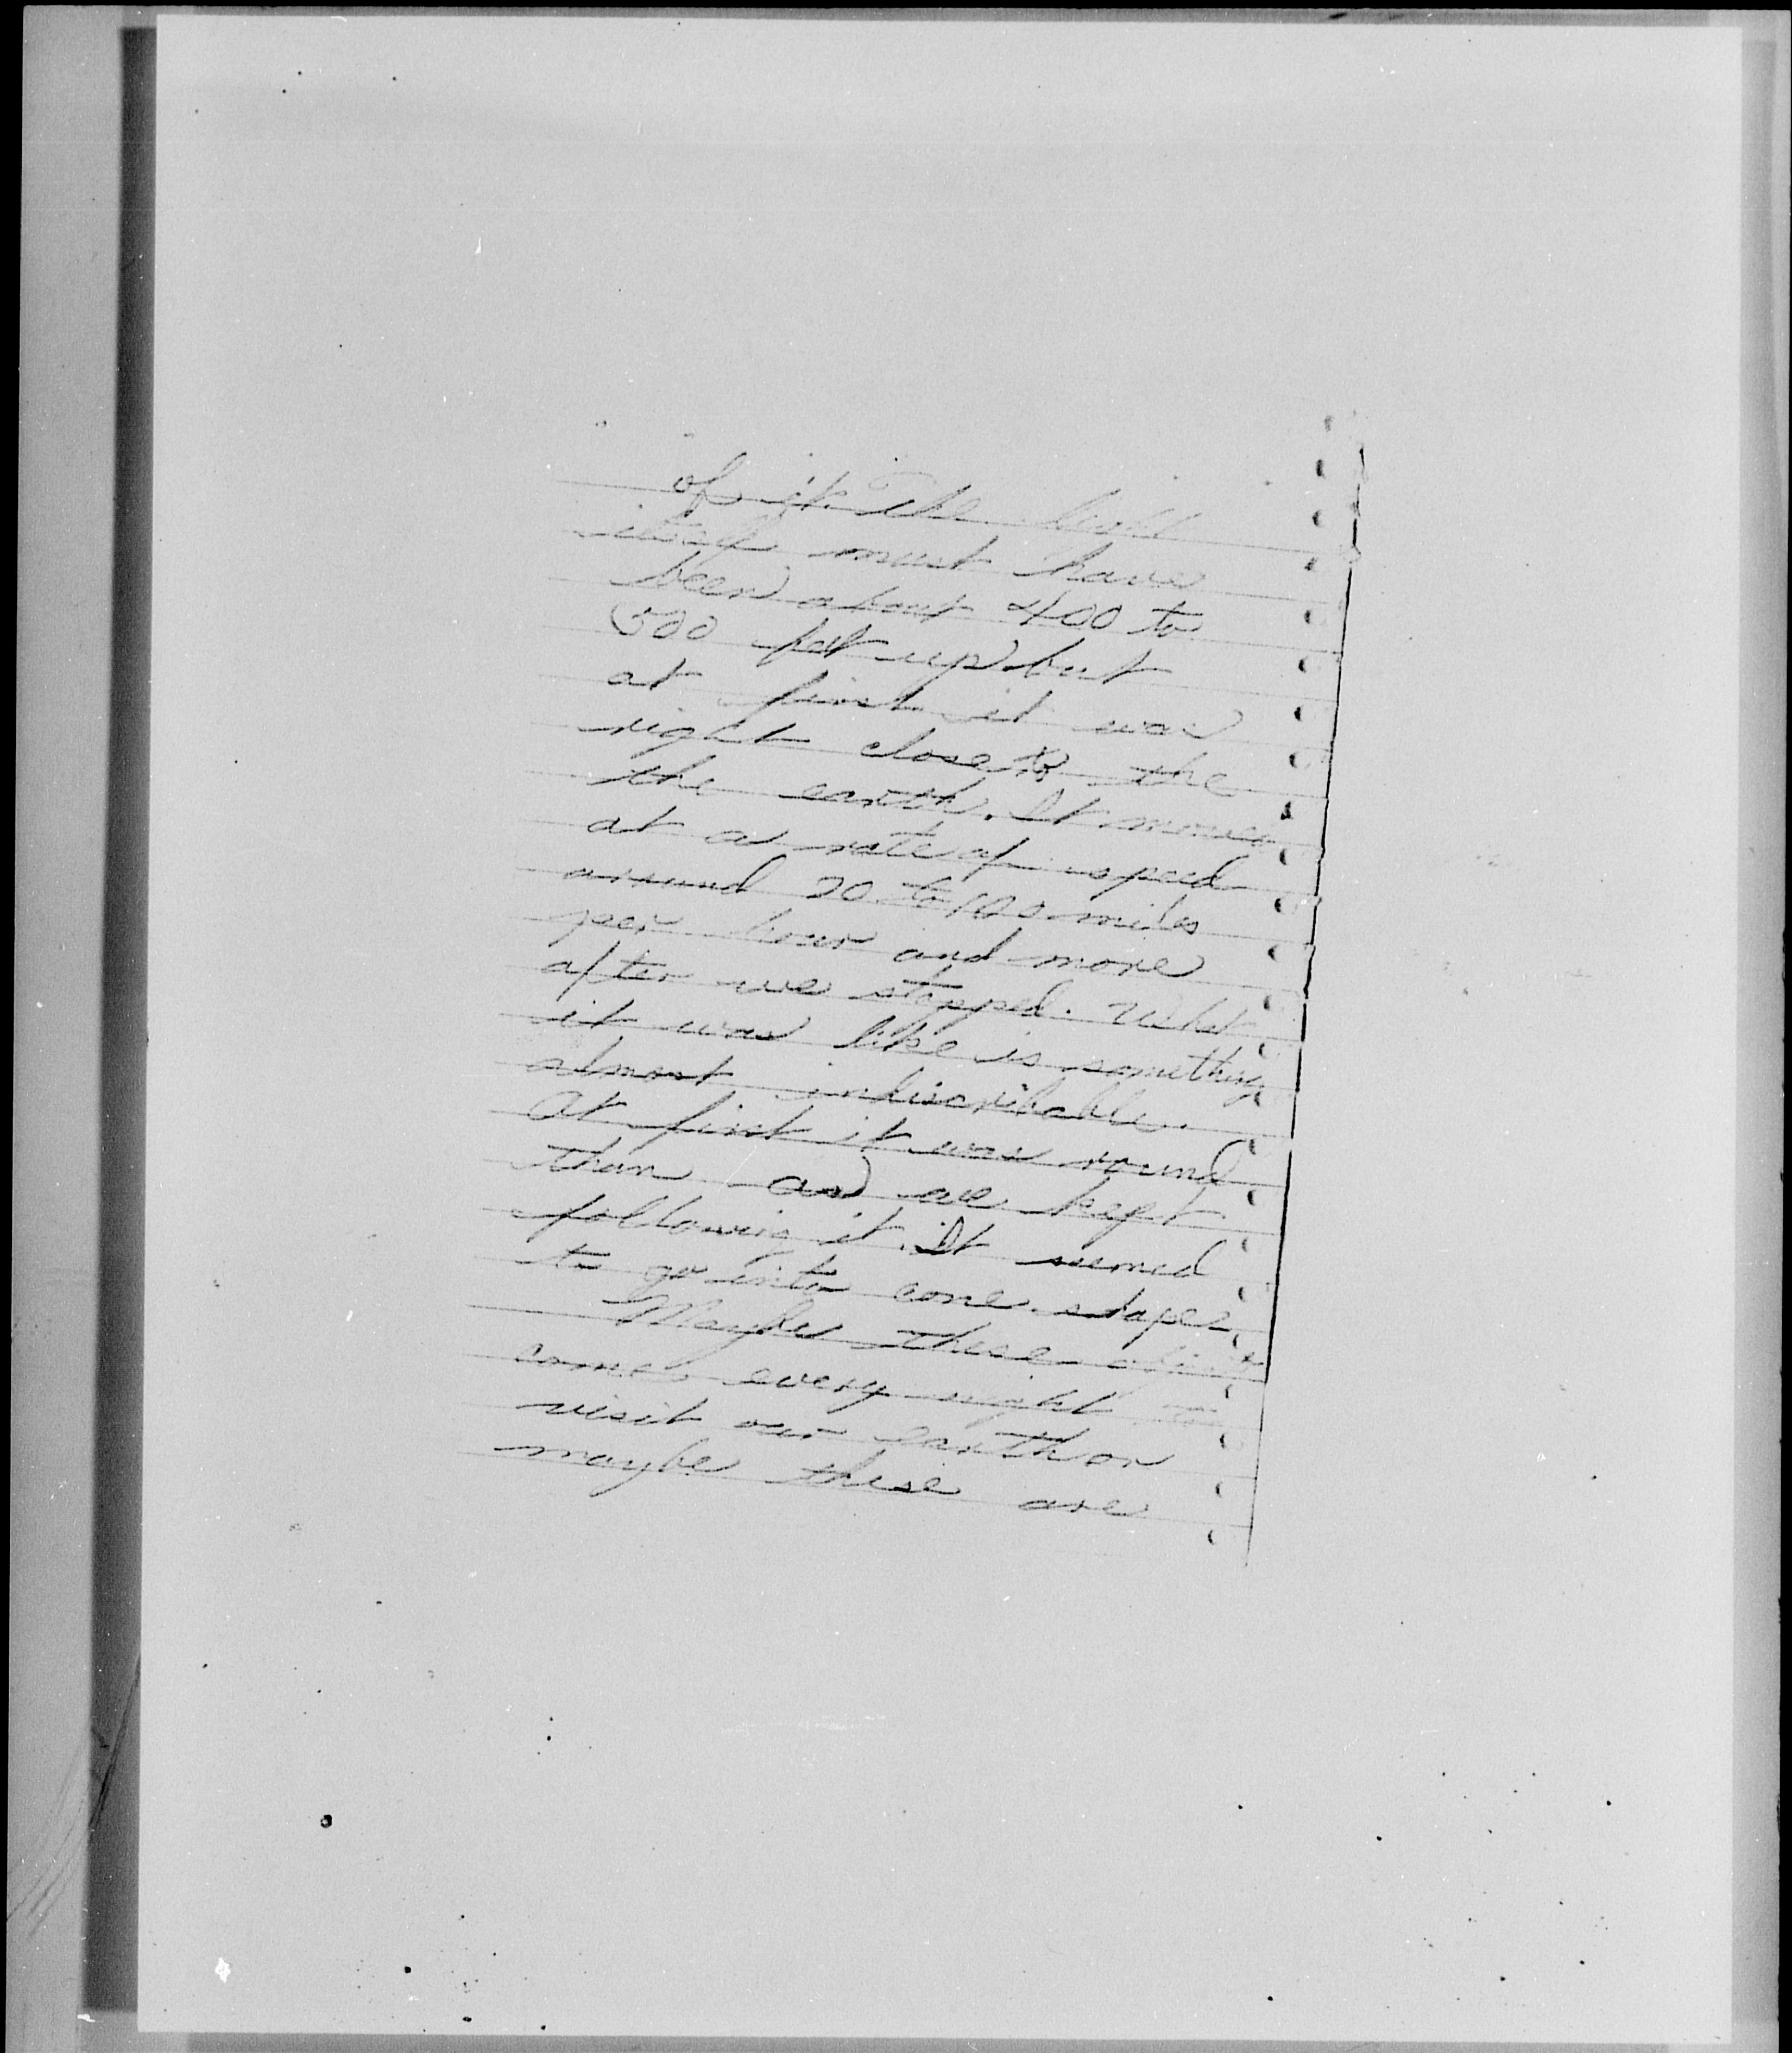 of it. The light
itself must have
been about 400 to
500 feet up but
at first it was
right close to the
the earth. It moved
at a rate of speed
around 70 to 100 miles
per hour and more
after we stopped. What
it was like is something
almost indiscribable.
At first it was round
than as we kept
following it. It seemed
to go into cone shape.
Maybe these
come every night to
visit our earth or
maybe these are